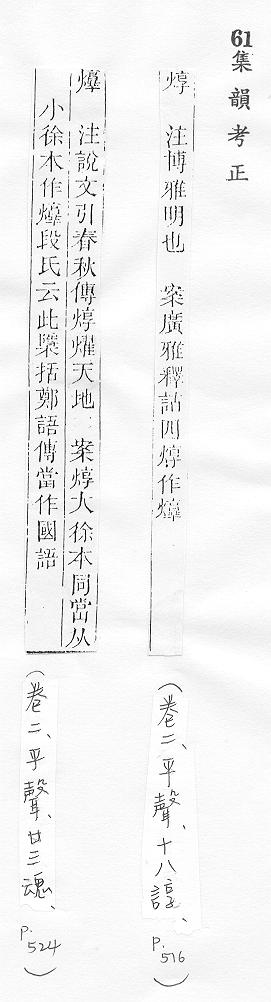 61集韻考正
焞 注博雅明也 案廣雅釋詁四焞作𤓯
(卷二、平聲、十八諄、p.516)
注說文引春秋傳焞燿天地 案焞大徐本同當从
小徐本作 段氏云此櫽括鄭語傳當作國語
(卷二、平聲、廿三魂、p.524)